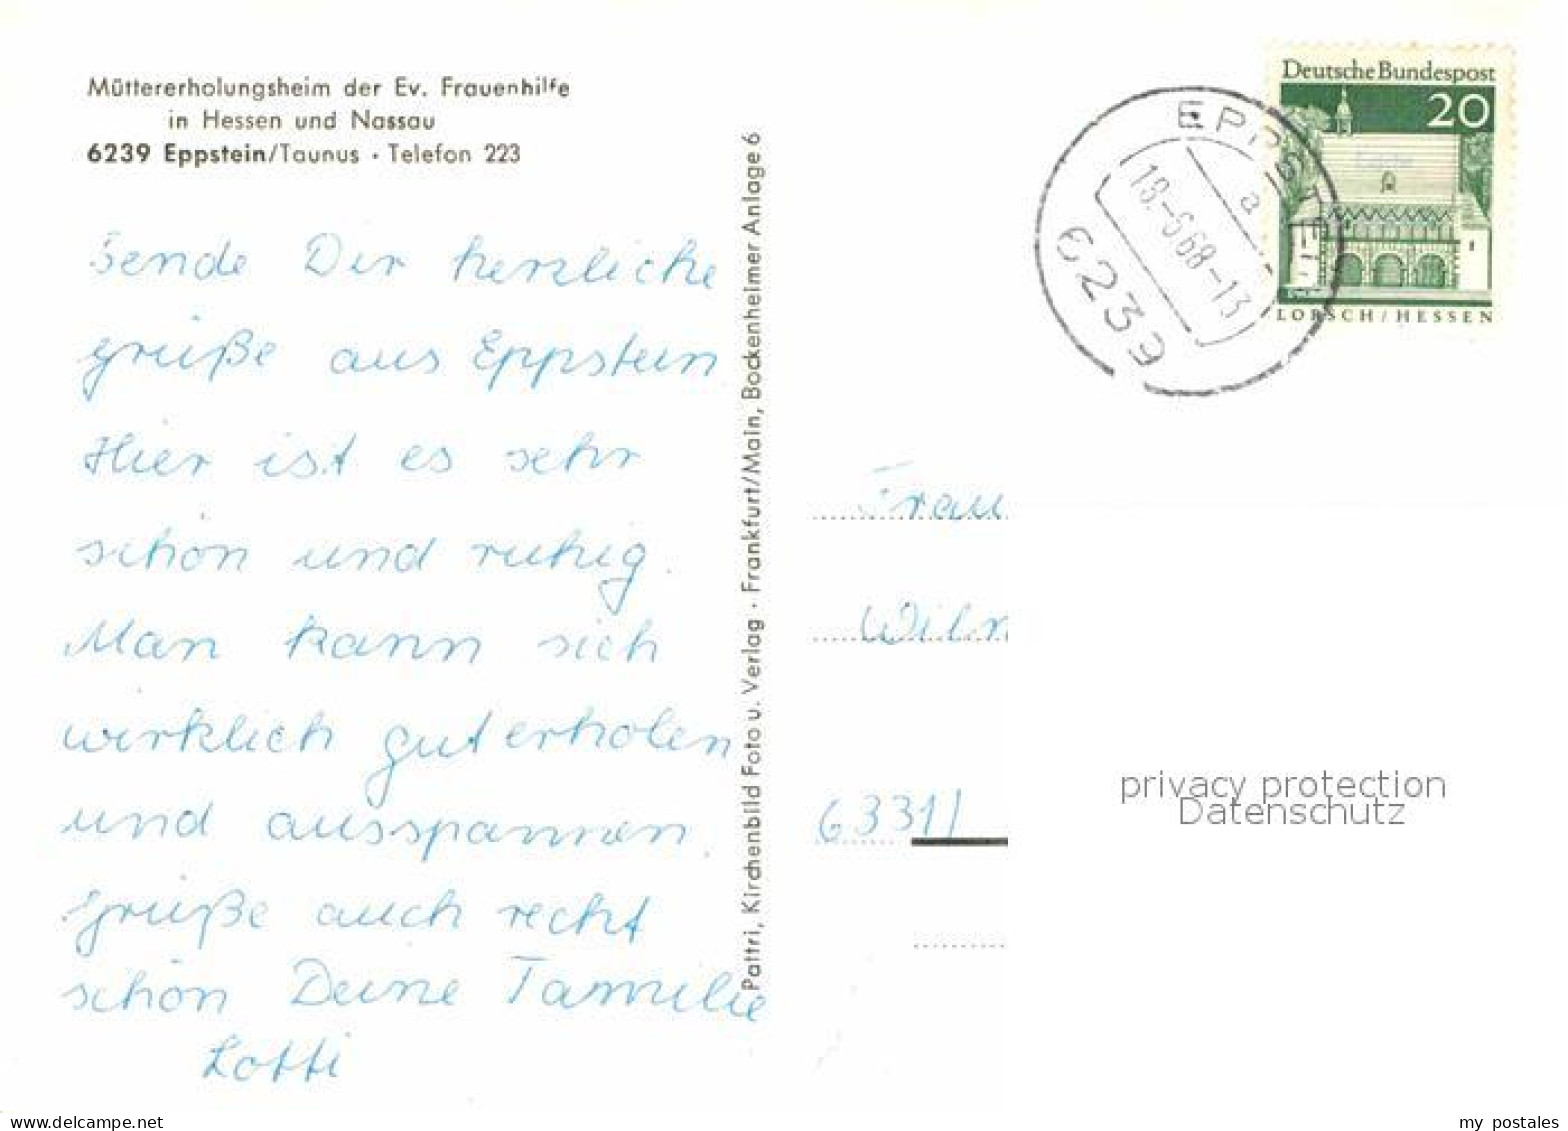 Müttererholungsheim der Ev. Frauenhilfe
in Hessen und Nassau
6239 Eppstein/Taunus · Telefon 223
Sende Dir herzliche
grüße aus Eppstein
Hier ist es sehr
schön und ruhig.
Man kann sich
wirklich gut erholen
und ausspannen.
grüße auch recht
schön Deine Familie
Lotti
Pattri, Kirchenbild Foto u. Verlag · Frankfurt/Main, Bockenheimer Anlage 6
Deutsche Bundespost
20
LORSCH/HESSEN
EPPSTEIN
a
18.-6.68-13
6239
Frau
6331
privacy protection
Datenschutz
my postales